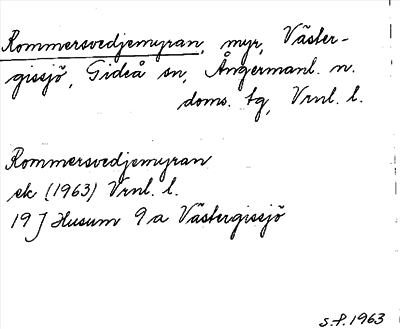 Rommersvedjemyran, myr, Väster-
gissjö, Gideå sn, Ångermanl. n.
doms. tg, Vrnl. l.
Rommersvedjemyran
ek (1963) Vrnl. l.
19 J Husum 9a Västergissjö
S.P. 1963